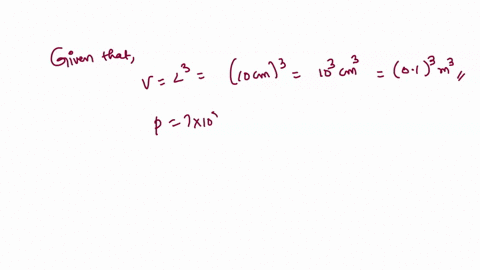 Given that,
V = L³ = (10 cm)³ = 10³ cm³ = (0.1)³ m³
P = 7×10